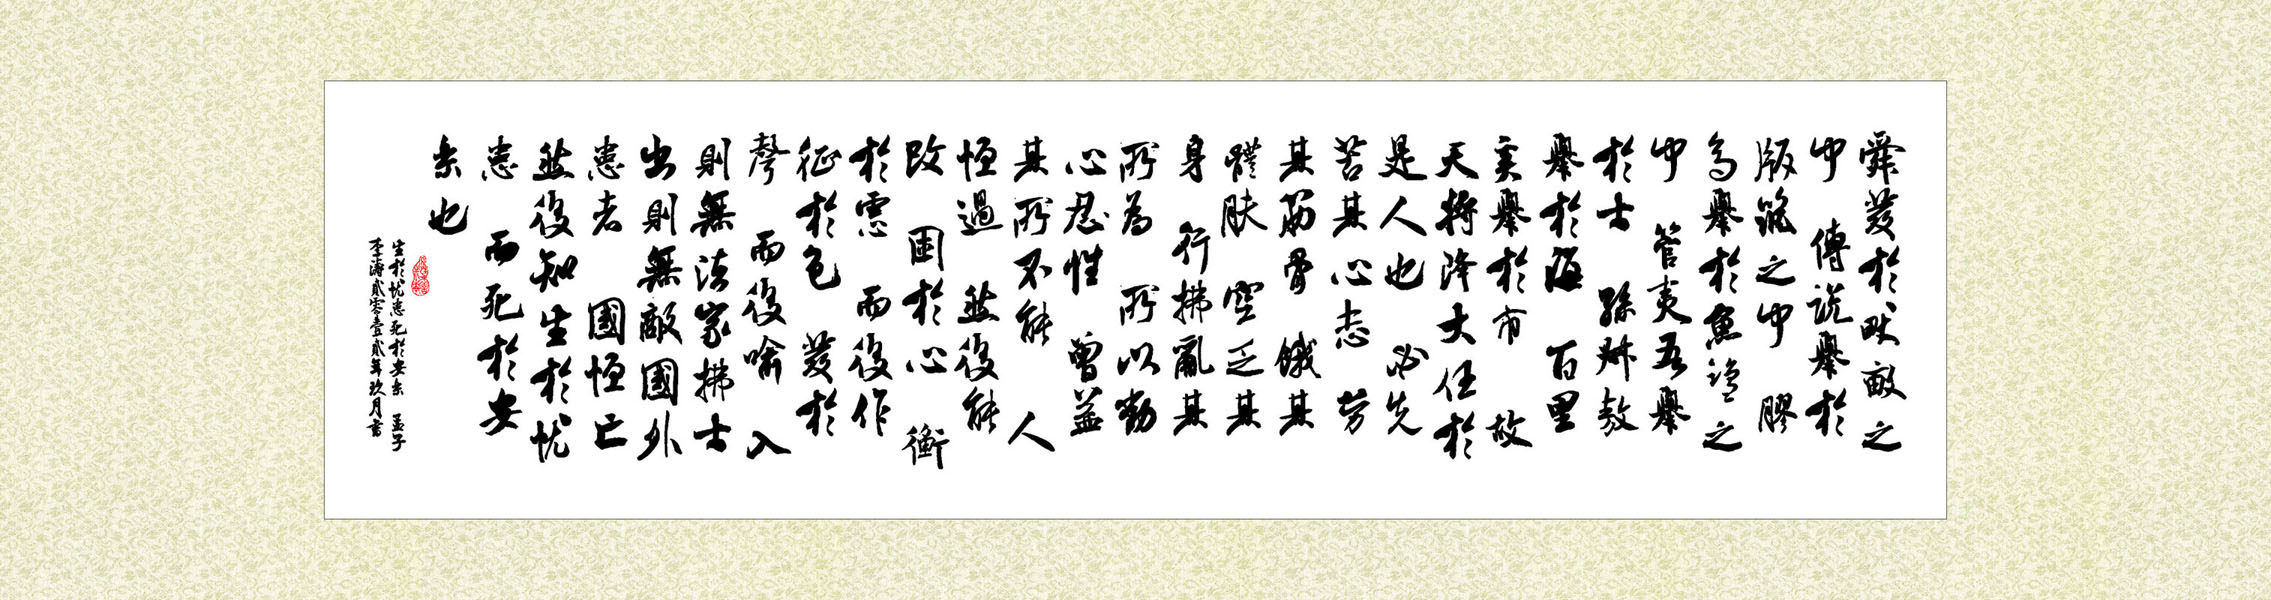 舜發於畎畝之
中 傅説舉於
版築之中 膠
鬲舉於魚鹽之
中 管夷吾舉
於士 孫叔敖
舉於海 百里
奚舉於市 故
天將降大任於
是人也 必先
苦其心志 勞
其筋骨 餓其
體肤 空乏其
身 行拂亂其
所為 所以動
心忍性 曾益
其所不能 人
恒過 然後能
改 困於心 衡
於慮 而後作
征於色 發於
聲 而後喻 入
則無法家拂士
出則無敵國外
患者 國恒亡
然後知生於忧
患 而死於安
乐也
生於忧患死於安乐 孟子
李濤貳零壹貳年玖月書